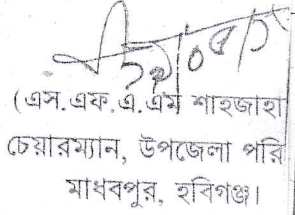 (এস.এফ.এ.এম শাহজাহা
চেয়ারম্যান, উপজেলা পরি
মাধবপুর, হবিগঞ্জ।